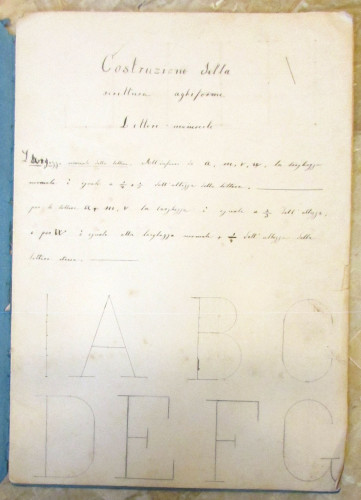 Costruzione della
scrittura agliforme
Lettere maiuscole
Largezza normale delle lettere. Nell'infuori di A, M, V, W, la larghezza
normale è eguale a dell'altezza delle lettere,
per le lettere A, M, V la larghezza è eguale a dell'altezza,
e per W è eguale alla larghezza normale + dell'altezza delle
lettere stesse.
A B C
D E F G